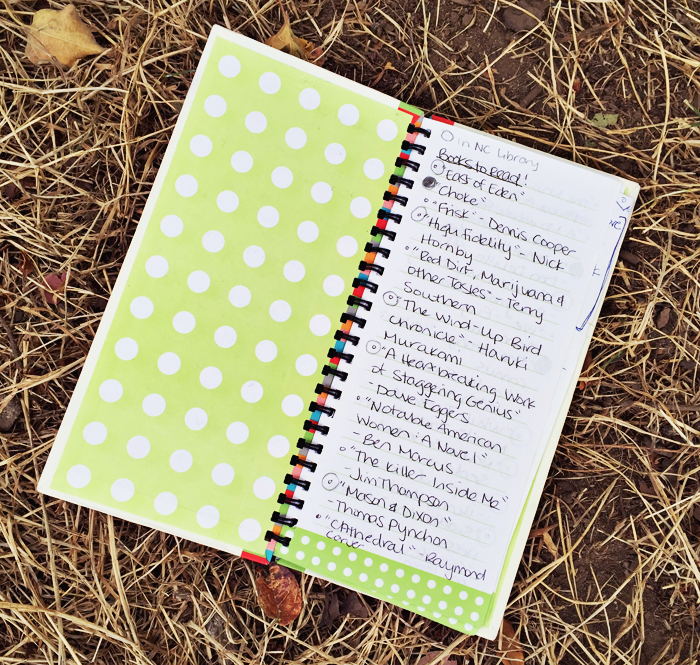 O in NC Library
Books to Read!
"East of Eden"
"Choke"
"Frisk" - Dennis Cooper
"High Fidelity" - Nick
Hornby
"Red Dirt, Marijuana &
other Tastes" - Terry
Southern
"The Wind-Up Bird
Chronicle" - Haruki
Murakami
"A Heartbreaking Work
of Staggering Genius"
- Dave Eggers
"Notable American
Women: A Novel"
- Ben Marcus
"The Killer Inside Me"
- Jim Thompson
"Mason & Dixon"
Thomas Pynchon
"Cathedral" - Raymond
Carver